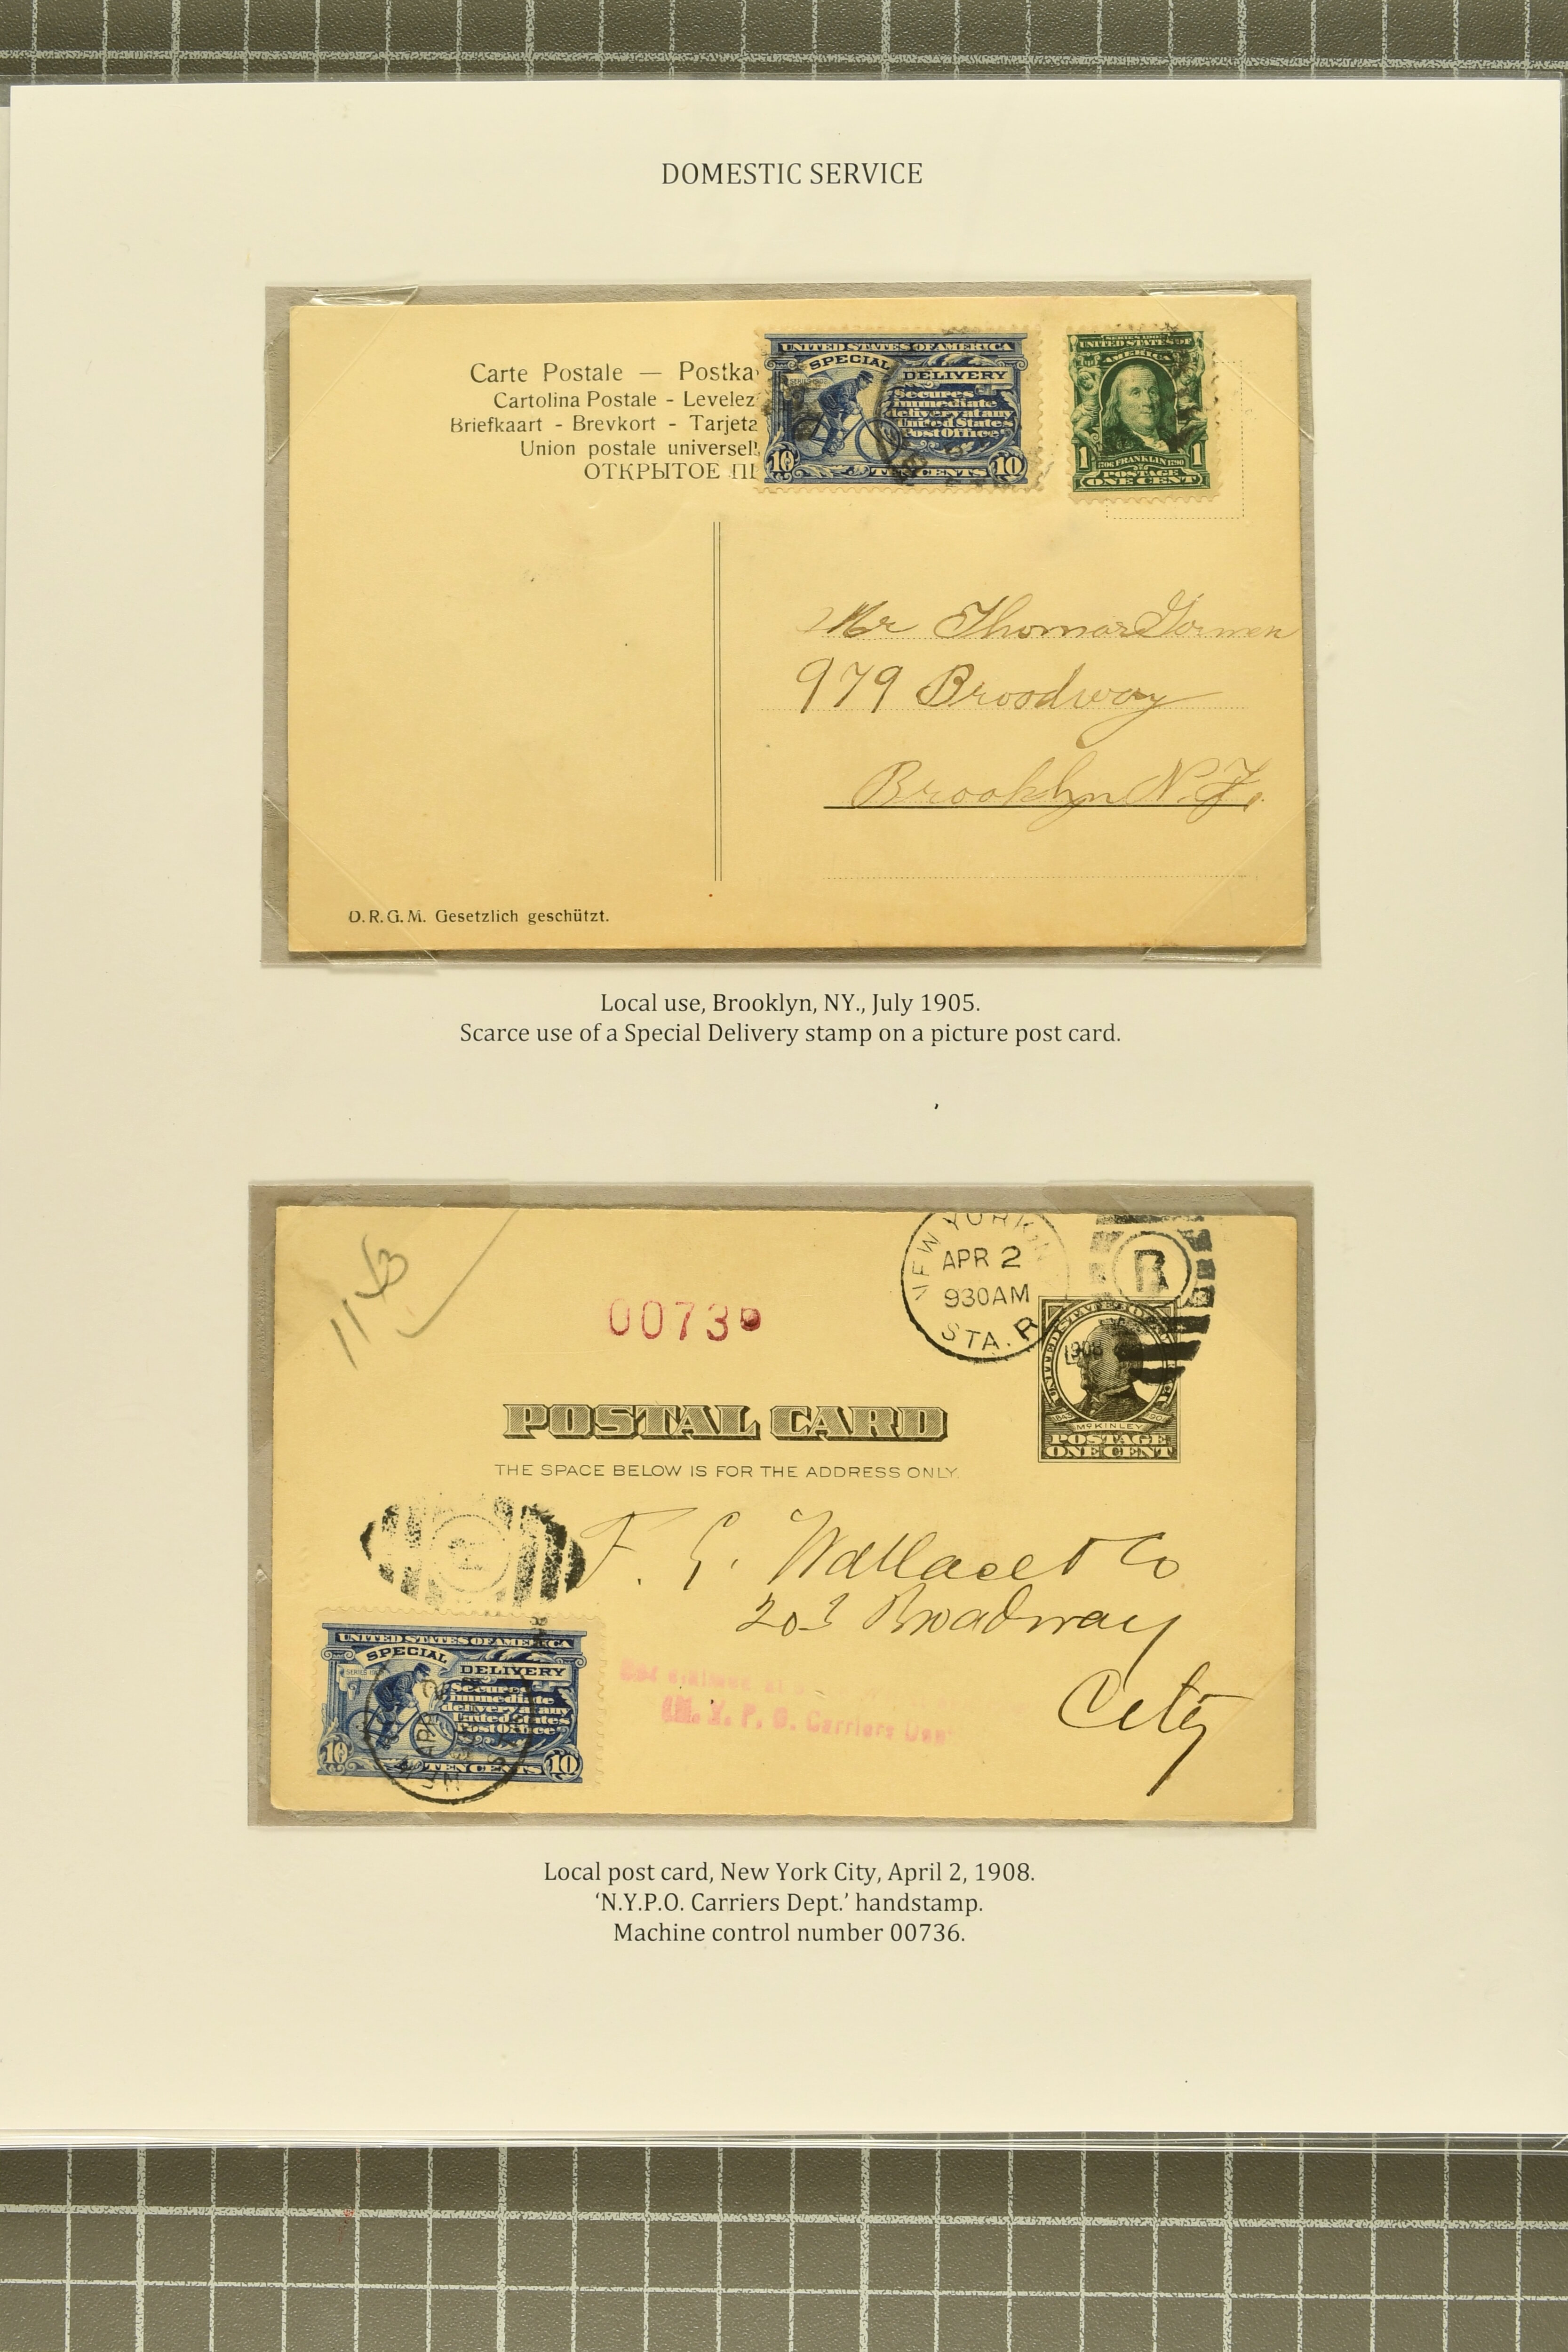 DOMESTIC SERVICE
Carte Postale — Postka
Cartolina Postale - Levelez
Briefkaart - Brevkort - Tarjeta
Union postale universell
ОТКРЫТОЕ П
UNITED STATES OF AMERICA
SPECIAL
DELIVERY
Secures
immediate
delivery at any
United States
Post Office
10 TEN CENTS 10
SERIES 1902
UNITED STATES OF
AMERICA
1 1706 FRANKLIN 1790 1
POSTAGE
ONE CENT
Mr Thomas Gormen
979 Broadway
Brooklyn N.Y.
D.R.G.M. Gesetzlich geschützt.
Local use, Brooklyn, NY., July 1905.
Scarce use of a Special Delivery stamp on a picture post card.
0073
NEW YORK, N
APR 2
930AM
STA. R
1908
R
1843 1901
McKINLEY
POSTAGE
ONE CENT
POSTAL CARD
THE SPACE BELOW IS FOR THE ADDRESS ONLY.
F. G. Wallace & Co
203 Broadway
City
UNITED STATES OF AMERICA
SPECIAL
DELIVERY
SERIES 1902
Secures
immediate
delivery at any
United States
Post Office
10 TEN CENTS 10
APR
N. Y. P. O. Carriers Dep
Local post card, New York City, April 2, 1908.
‘N.Y.P.O. Carriers Dept.’ handstamp.
Machine control number 00736.